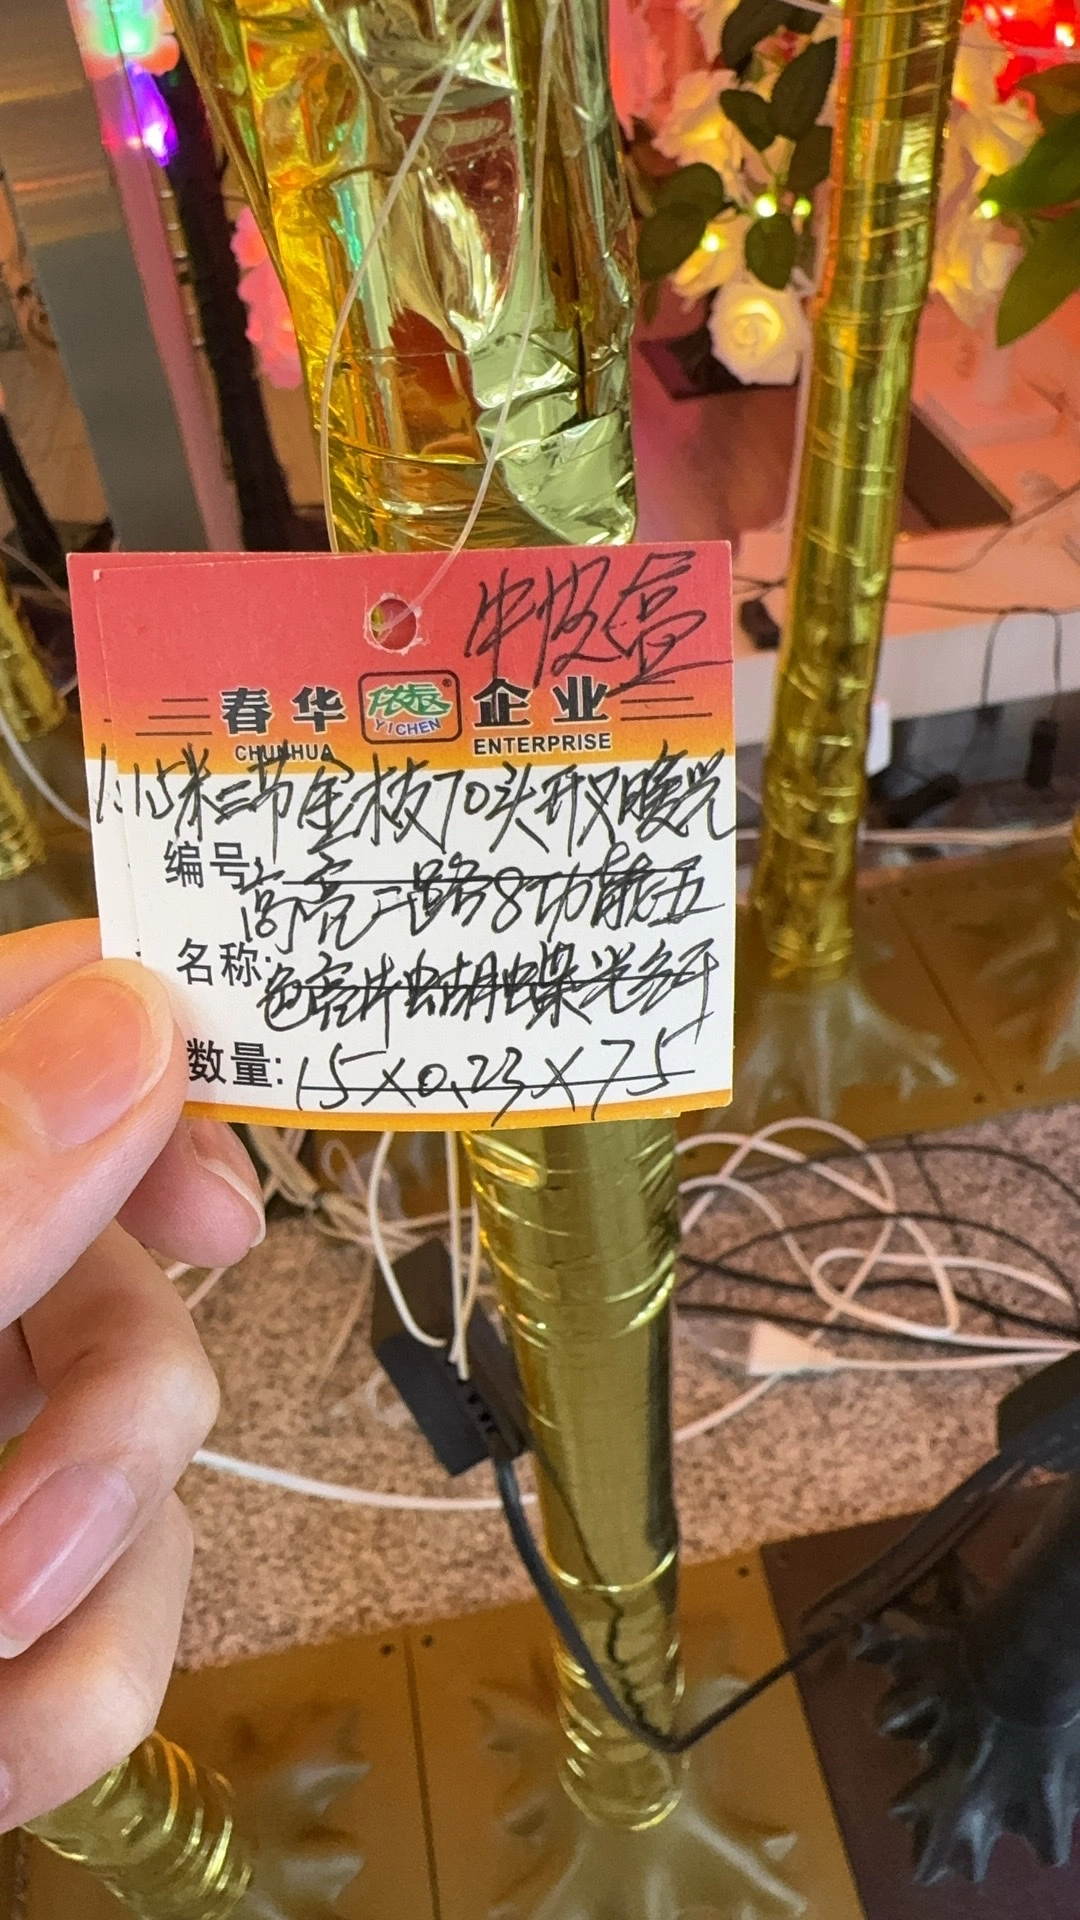 牛皮盒
春华 依辰® 企业
CHUNHUA YICHEN ENTERPRISE
1.15米二节金枝70头开叉暖光
编号:高亮二路8功能五
名称:色亮片蝴蝶光纤
数量:15×0.23×75